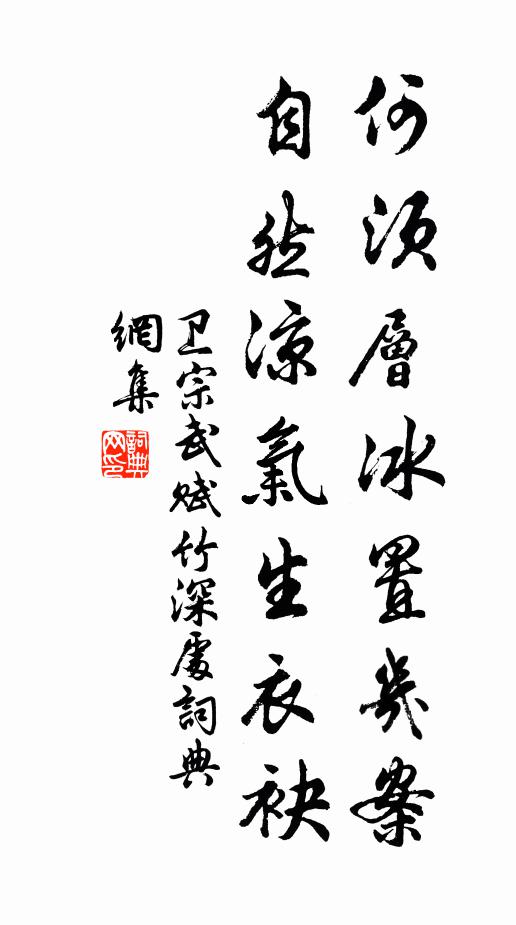 何須層冰置幾案
自然涼氣生衣袂
卫宗武賦竹深處詞典
網集
詞典
网印